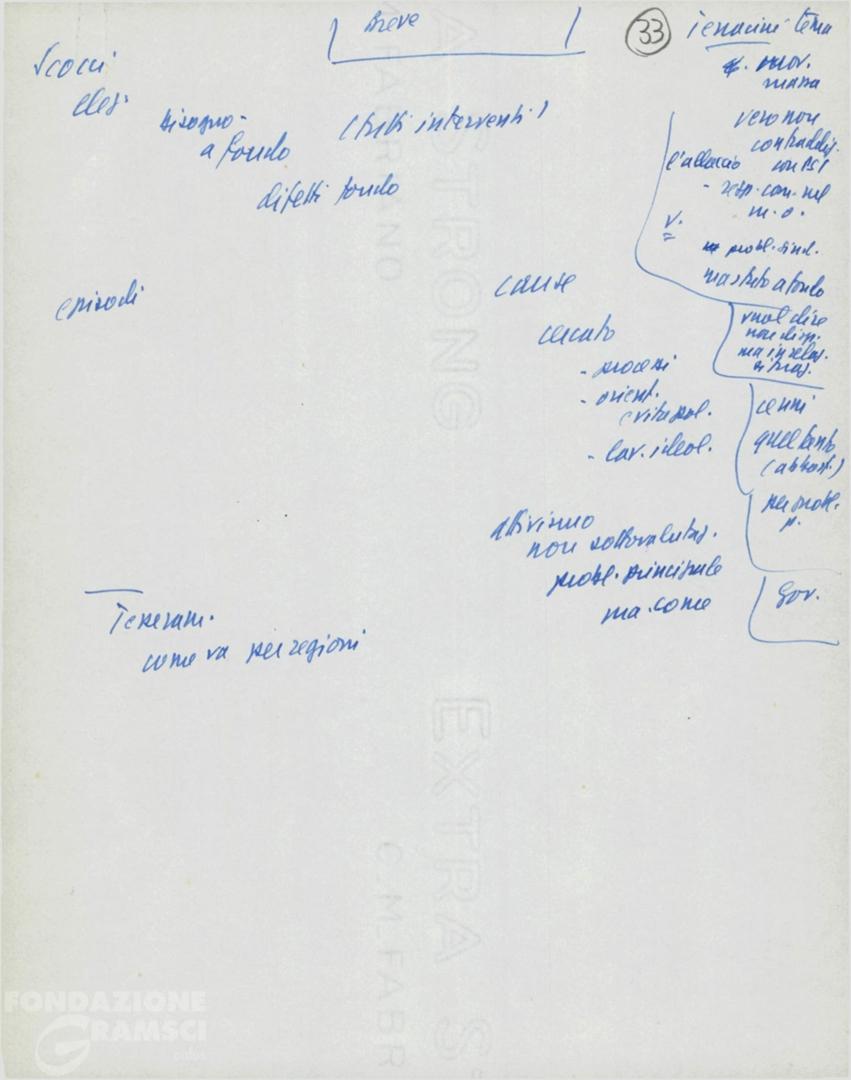 breve
33
Terracini tema
mov.
massa
Scocci
eles.
bisogno
a fondo
(tutti interventi)
difetti fondo
vero non
contraddiz.
l'allaccio con PSI
- resp. com. nel
m. o.
V.
probl. sind.
ma tutto a fondo
episodi
cause
cercato
- processi
- orient.
critica pol.
- lav. ideol.
vuol dire
non dim.
ma in relaz.
cenni
quel tanto
(abbast.)
attivismo
non sottovalutaz.
probl. principale
ma come
per probl.
p.
Gov.
Tesseram.
come va per regioni
A STRONG
M. FABRIANO
EXTRA S
C. M. FABR
FONDAZIONE
GRAMSCI
onlus